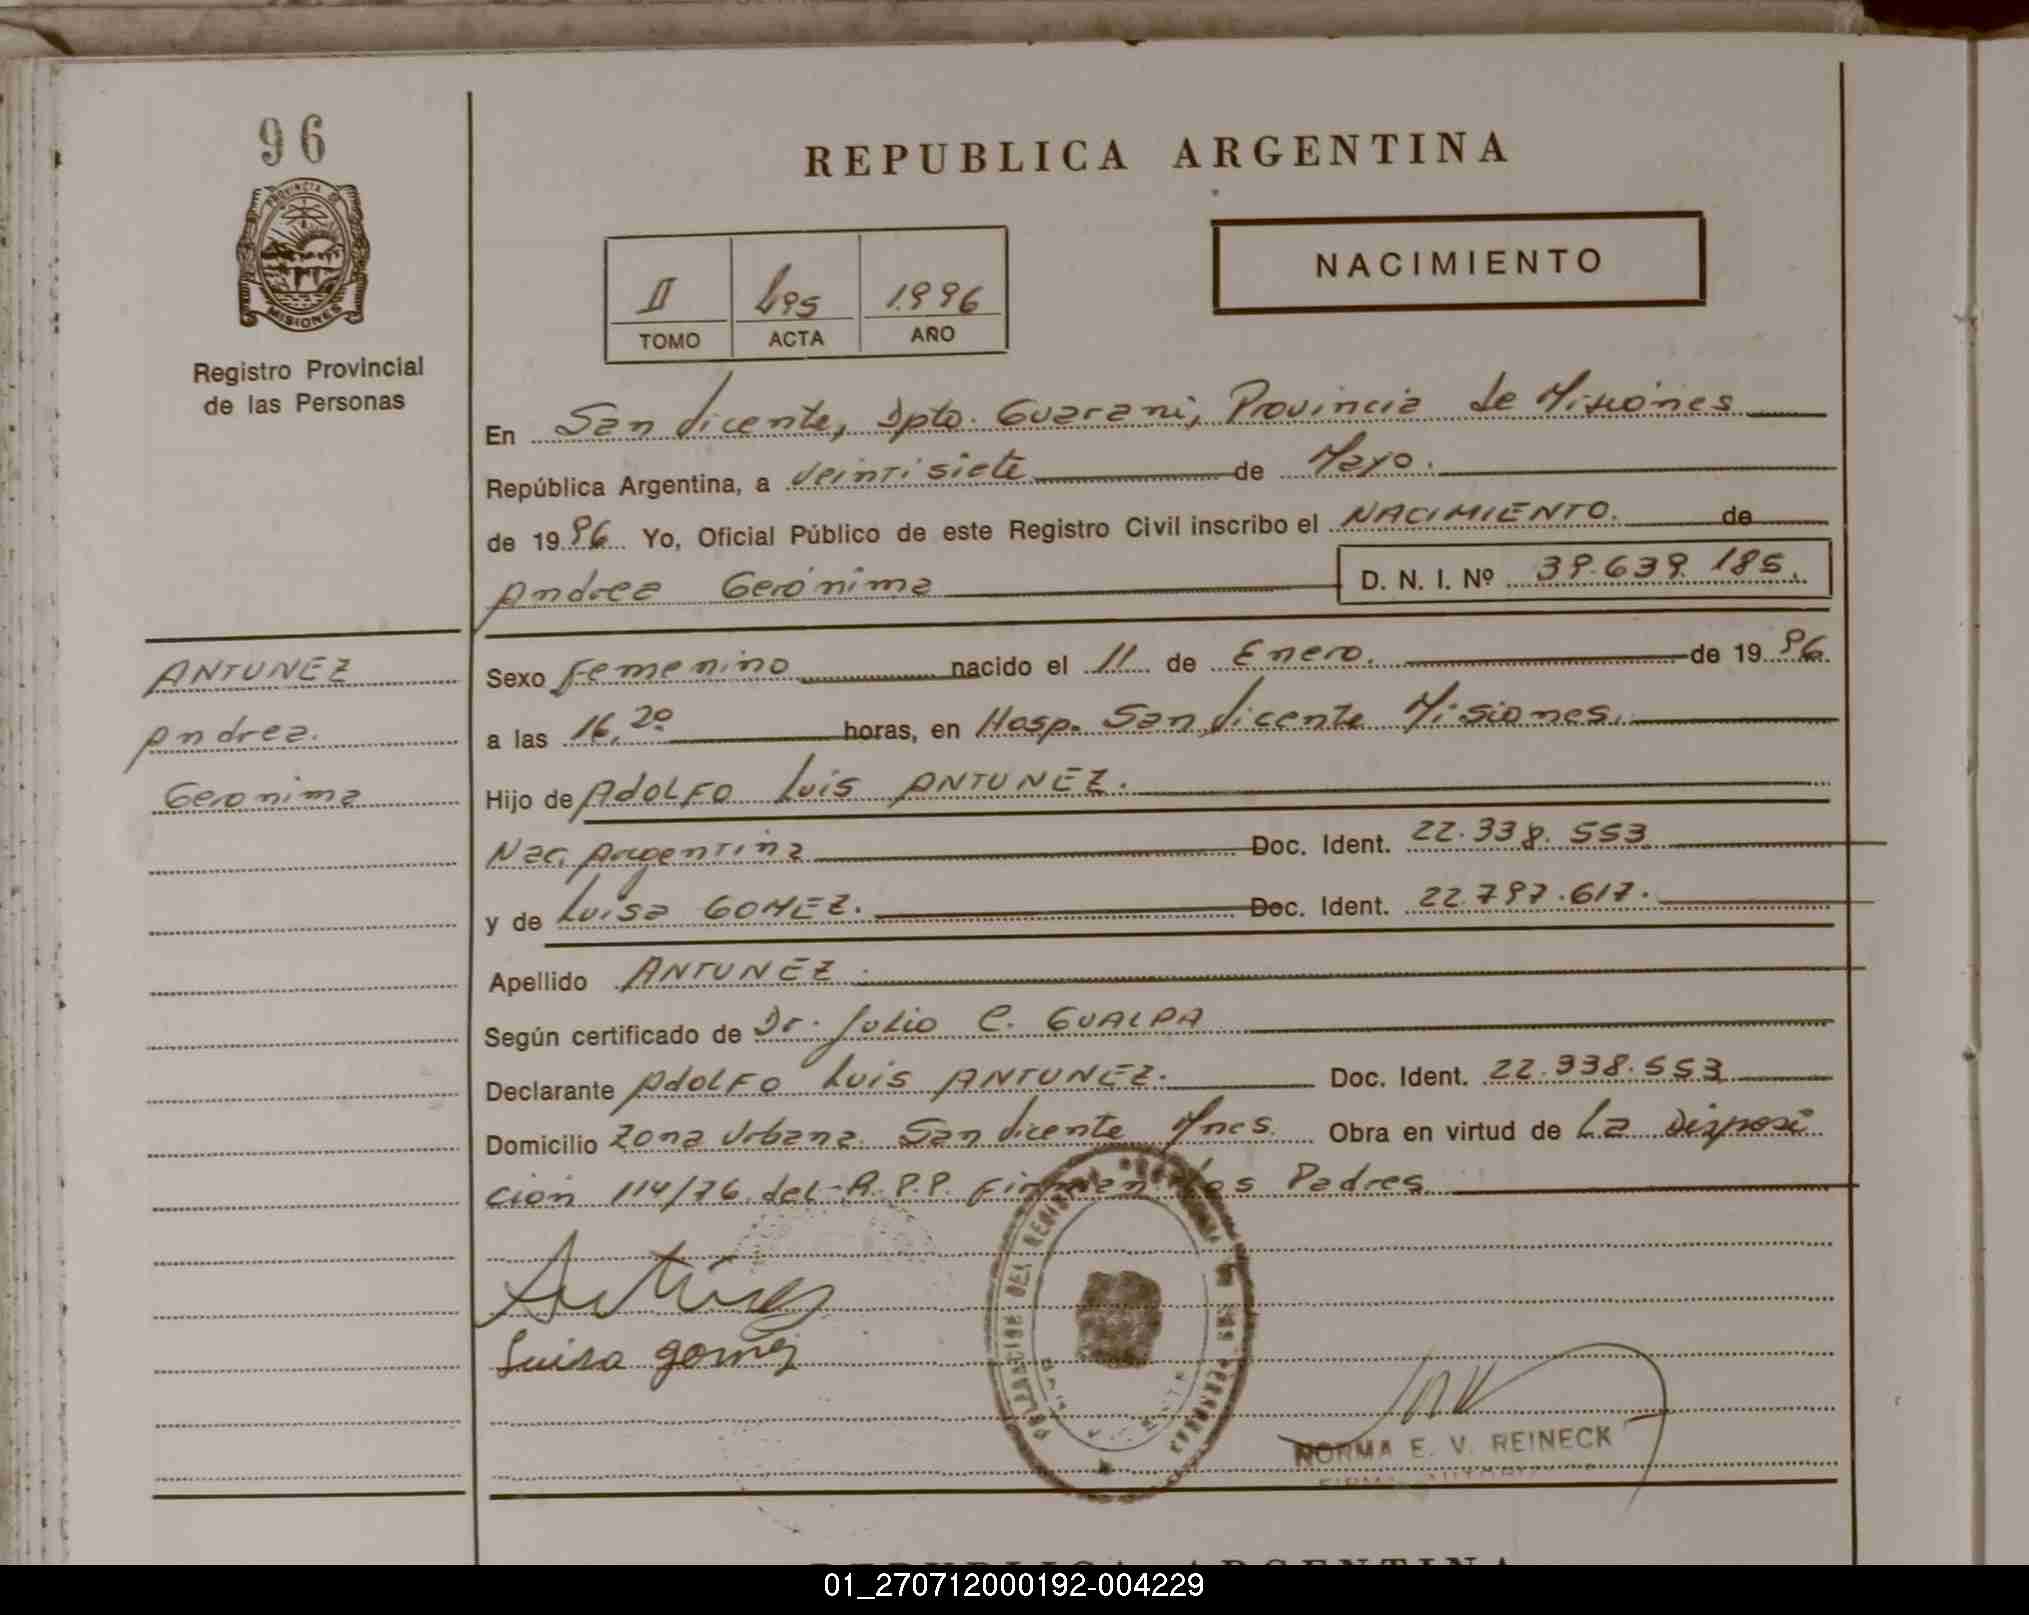 96
PROVINCIA DE
MISIONES
Registro Provincial
de las Personas
REPUBLICA ARGENTINA
NACIMIENTO
II 1.996
TOMO ACTA AÑO
En San Vicente, Dpto. Guarani, Provincia de Misiones
República Argentina, a Veintisiete de Mayo.
de 19 96 Yo, Oficial Público de este Registro Civil inscribo el NACIMIENTO. de
Andrea Gerónima D. N. I. Nº 39.639.185.
ANTUNEZ
Andrea.
Geronima
Sexo Femenino nacido el 11 de Enero. de 19 96.
a las 16,20 horas, en Hosp. San Vicente Misiones.
Hijo de ADOLFO Luis ANTUNEZ.
Nac. Argentina Doc. Ident. 22.338.553
y de Luisa GOMEZ. Doc. Ident. 22.797.617.
Apellido ANTUNEZ.
Según certificado de Dr. Julio C. GUALPA
Declarante ADOLFO Luis ANTUNEZ. Doc. Ident. 22.338.553
Domicilio Zona Urbana San Vicente Mnes. Obra en virtud de La Disposi
ción 114/76 del R.P.P. Firman Los Padres
Antunez
Luisa gomez
NORMA E. V. REINECK
REPUBLICA ARGENTINA
01_270712000192-004229